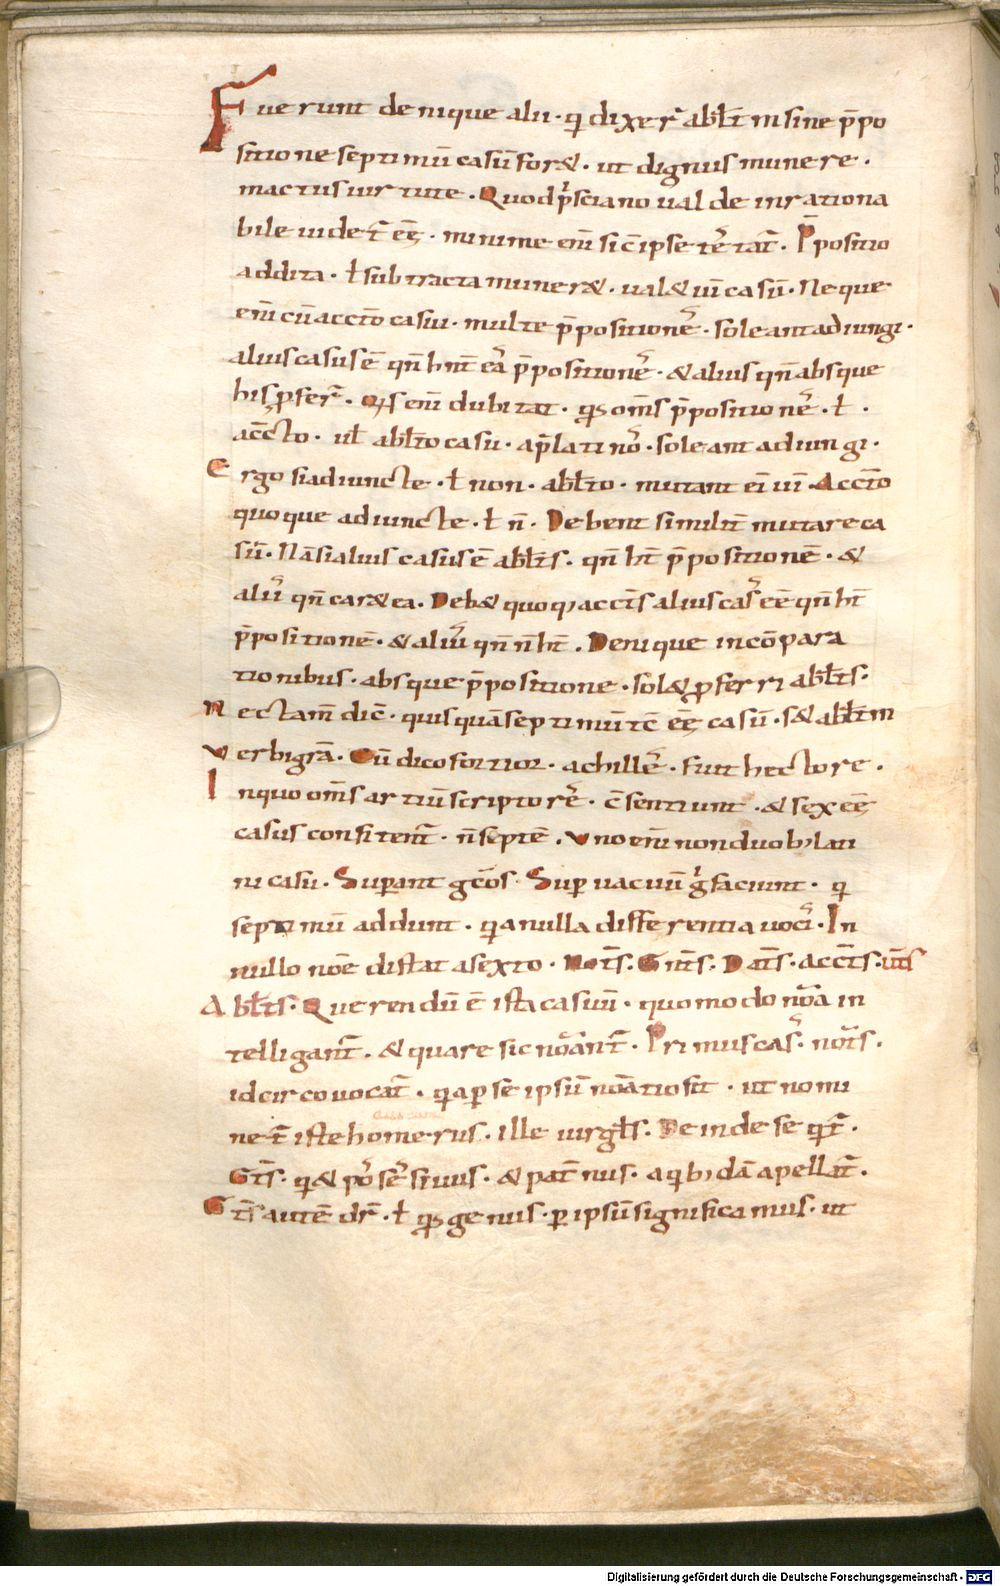 Fuerunt denique alii · qi dixer̄ abl̄t̄m sine p̄po
sitione septimū casū for& · ut dignus munere ·
mactus uirtute · Quod p̄sciano ualde inrationa
bile uidet̄ eē · minime eni sic ipse tētat̄ · P̄positio
addita · ł subtracta muner& · ual& ui casū · Neque
eni cū accto casui · multe p̄positionē · soleant adiungi ·
alius casus ē qn̄ hnt eā p̄positionē · & alius qn̄ absque
his pferr̄ · Q's eni dubitat · qd oms p̄positionē · ł ·
accto · ul̄ abl̄to casu · ap̄ latinos · soleant adiungi ·
Ergo si adiuncte · ł non · abl̄to · mutant ei ui · Accto
quoque adiuncte · ł n̄ · Debent similit̄ mutare ca
sū · Nā si alius casus ē abl̄ts · qn̄ ht̄ p̄positionē · &
aliū qn̄ car& ea · Deb& quoq; accts alius cas' eē qn̄ ht̄
p̄positionē · & aliū qn̄ n̄ ht̄ · Denique in cōpara
tionibus · absque p̄positione · sol& pferri abl̄ts ·
Nec tam̄ dic̄ · quisquā septimū tc̄ eē casū · s& abl̄tm
Verbi grā · Cū dico fortior · achillē · fuit hectore ·
In quo oms artiū scriptorē · c̄sentiunt · & sex eē
casus confitent̄ · n̄ septē · Uno eni non duob; lati
ni casu · Superant gcos · Superuacuū g̓ faciunt · qi
septimū addunt · qia nulla differentia uoci · In
nullo noē distat a sexto · Nots · Gnts · Dats · accts · uts
Abl̄ts · Querendū ē ista casuū · quomodo noā in
telligant̄ · & quare sic noānt̄ · Primus cas' · nots ·
idcirco uocat̄ · qia p se ipsū noātio sit · ut nomi
net̄ iste homerus · ille uirgl̄s · Deinde seqt̄ ·
Gts · qi & possesiuus · & patnus · a qib; dā apellat̄ ·
Gts autē dr̄ · ł qd genus · p ipsū significamus · ut
Digitalisierung gefördert durch die Deutsche Forschungsgemeinschaft - DFG